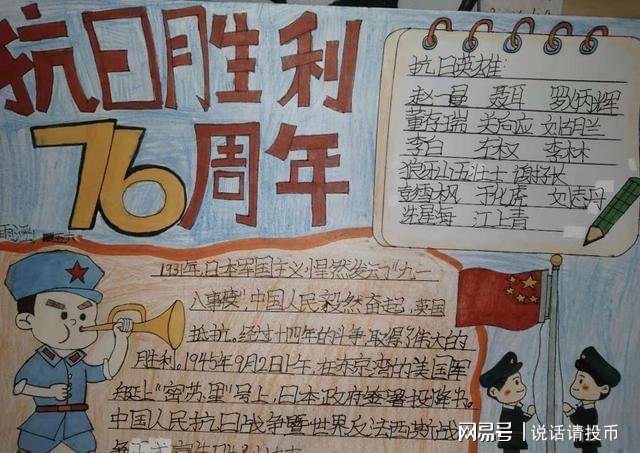 抗日胜利
76周年
抗日英雄:
赵一曼 聂耳 罗炳辉
董存瑞 关向应 刘胡兰
李白 左权 李林
狼牙山五壮士
彭雪枫 于化虎 刘志丹
冼星海 江上青
1931年,日本军国主义悍然发动了"九一
八事变",中国人民毅然奋起,英国
抵抗。经过十四年的斗争,取得了伟大的
胜利。1945年9月2日上午,在东京湾的美国军
舰上"密苏里"号上,日本政府签署投降书。
中国人民抗日战争暨世界反法西斯战
网易号 | 说话请投币